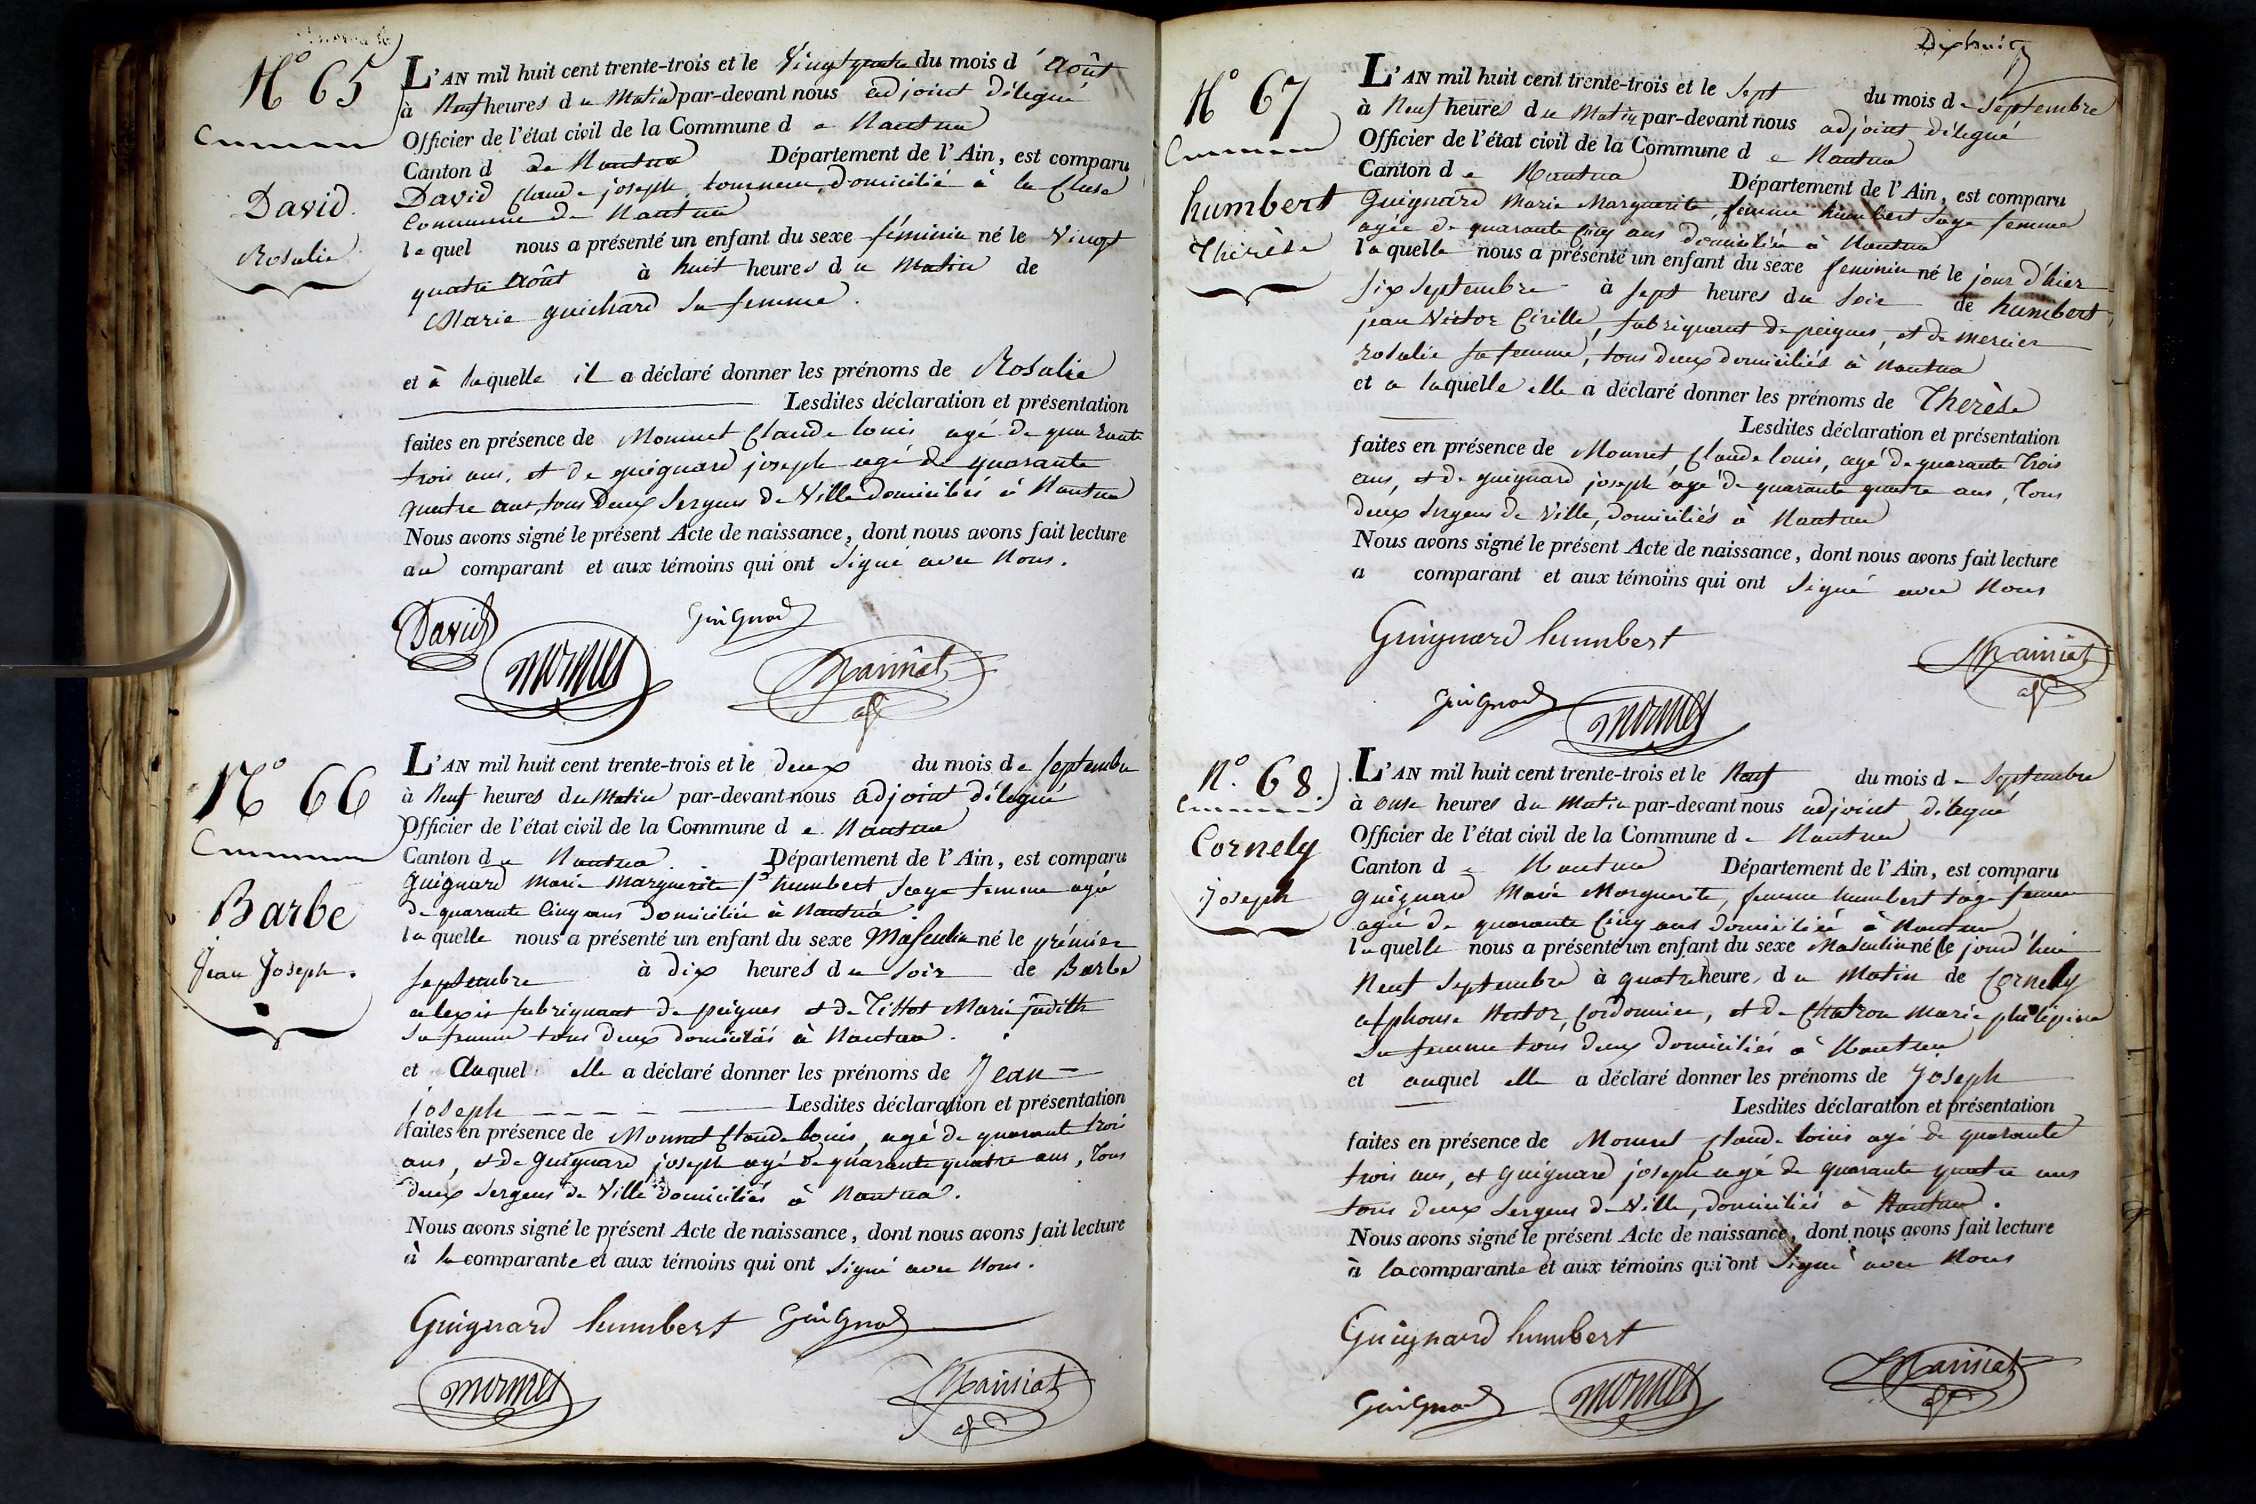 N° 65
David
Rosalie
L'AN mil huit cent trente-trois et le vingt quatre du mois d'Août
à Neuf heures du Matin par-devant nous adjoint délegué
Officier de l'état civil de la Commune de Nantua
Canton d de Nantua Département de l'Ain, est comparu
David Claude joseph, tourneur, domicilié à la Cluse
Commune de Nantua
lequel nous a présenté un enfant du sexe féminin né le Vingt
quatre Août à huit heures du Matin de
Marie guichard sa femme.
et à laquelle il a déclaré donner les prénoms de Rosalie
Lesdites déclaration et présentation
faites en présence de Monnet Claude louis agé de quarante
trois ans, et de guignard joseph agé de quarante
quatre ans, tous Deux Sergens de Ville domiciliés à Nantua
Nous avons signé le présent Acte de naissance, dont nous avons fait lecture
au comparant et aux témoins qui ont Signé avec Nous.
David
Guignard
monnet
Mainiat
N° 66
Barbe
Jean Joseph.
L'AN mil huit cent trente-trois et le deux du mois de Septembre
à Neuf heures du Matin par-devant nous adjoint délegué
Officier de l'état civil de la Commune de Nantua
Canton de Nantua. Département de l'Ain, est comparu
guignard Marie Marguerite fe humbert Sage femme agée
de quarante Cinq ans Domiciliée à Nantua
laquelle nous a présenté un enfant du sexe Masculin né le prémier
Septembre à dix heures du Soir de Barbe
alexis fabriquant de peignes et de Tissot Marie judith
Sa femme tous Deux domiciliés à Nantua.
et Auquel elle a déclaré donner les prénoms de Jean
joseph Lesdites déclaration et présentation
faites en présence de Monnet Claude louis, agé de quarante trois
ans, et de guignard joseph agé de quarante quatre ans, tous
deux Sergens de Ville domiciliés à Nantua.
Nous avons signé le présent Acte de naissance, dont nous avons fait lecture
à la comparante et aux témoins qui ont Signé avec Nous.
Guignard humbert Guignard
monnet
Mainiat
Dixhuit
N° 67
humbert
Thérèse
L'AN mil huit cent trente-trois et le Sept du mois de Septembre
à Neuf heures du Matin par-devant nous adjoint délegué
Officier de l'état civil de la Commune de Nantua
Canton de Nantua Département de l'Ain, est comparu
Guignard Marie Marguerite, femme humbert Sage femme
agée de quarante Cinq ans domiciliée à Nantua
laquelle nous a présenté un enfant du sexe feminin né le jour d'hier
Six Septembre à Sept heures du Soir de humbert
jean Victor Cirille, fabriquant de peignes, et de mercier
rosalie sa femme, tous deux domiciliés à Nantua
et a laquelle elle a déclaré donner les prénoms de Therèse
Lesdites déclaration et présentation
faites en présence de Monnet, Claude louis, agé de quarante trois
ans, et de guignard joseph agé de quarante quatre ans, tous
deux Sergens de Ville, domiciliés à Nantua
Nous avons signé le présent Acte de naissance, dont nous avons fait lecture
a comparant et aux témoins qui ont Signé avec Nous
Guignard humbert
Mainiat
Guignard
monnet
N° 68.
Cornely
joseph
L'AN mil huit cent trente-trois et le Neuf du mois de Septembre
à onse heures du Matin par-devant nous adjoint délegué
Officier de l'état civil de la Commune de Nantua
Canton de Nantua Département de l'Ain, est comparu
guignard Marie Marguerite, femme humbert Sage femme
agée de quarante Cinq ans domiciliée à Nantua
laquelle nous a présenté un enfant du sexe Masculin né le jourd'hui
Neuf Septembre à quatre heure, du Matin de Cornely
alphonse Hector, Cordonnier, et de Chatron Marie philipine
Sa femme tous deux domiciliés à Nantua
et auquel elle a déclaré donner les prénoms de Joseph
Lesdites déclaration et présentation
faites en présence de Monnet Claude louis agé de quarante
trois ans, et guignard joseph agé de quarante quatre ans
tous deux Sergens de Ville, domiciliés à Nantua.
Nous avons signé le présent Acte de naissance, dont nous avons fait lecture
à la comparante et aux témoins qui ont Signé avec Nous
Guignard humbert
Mainiat
Guignard
monnet